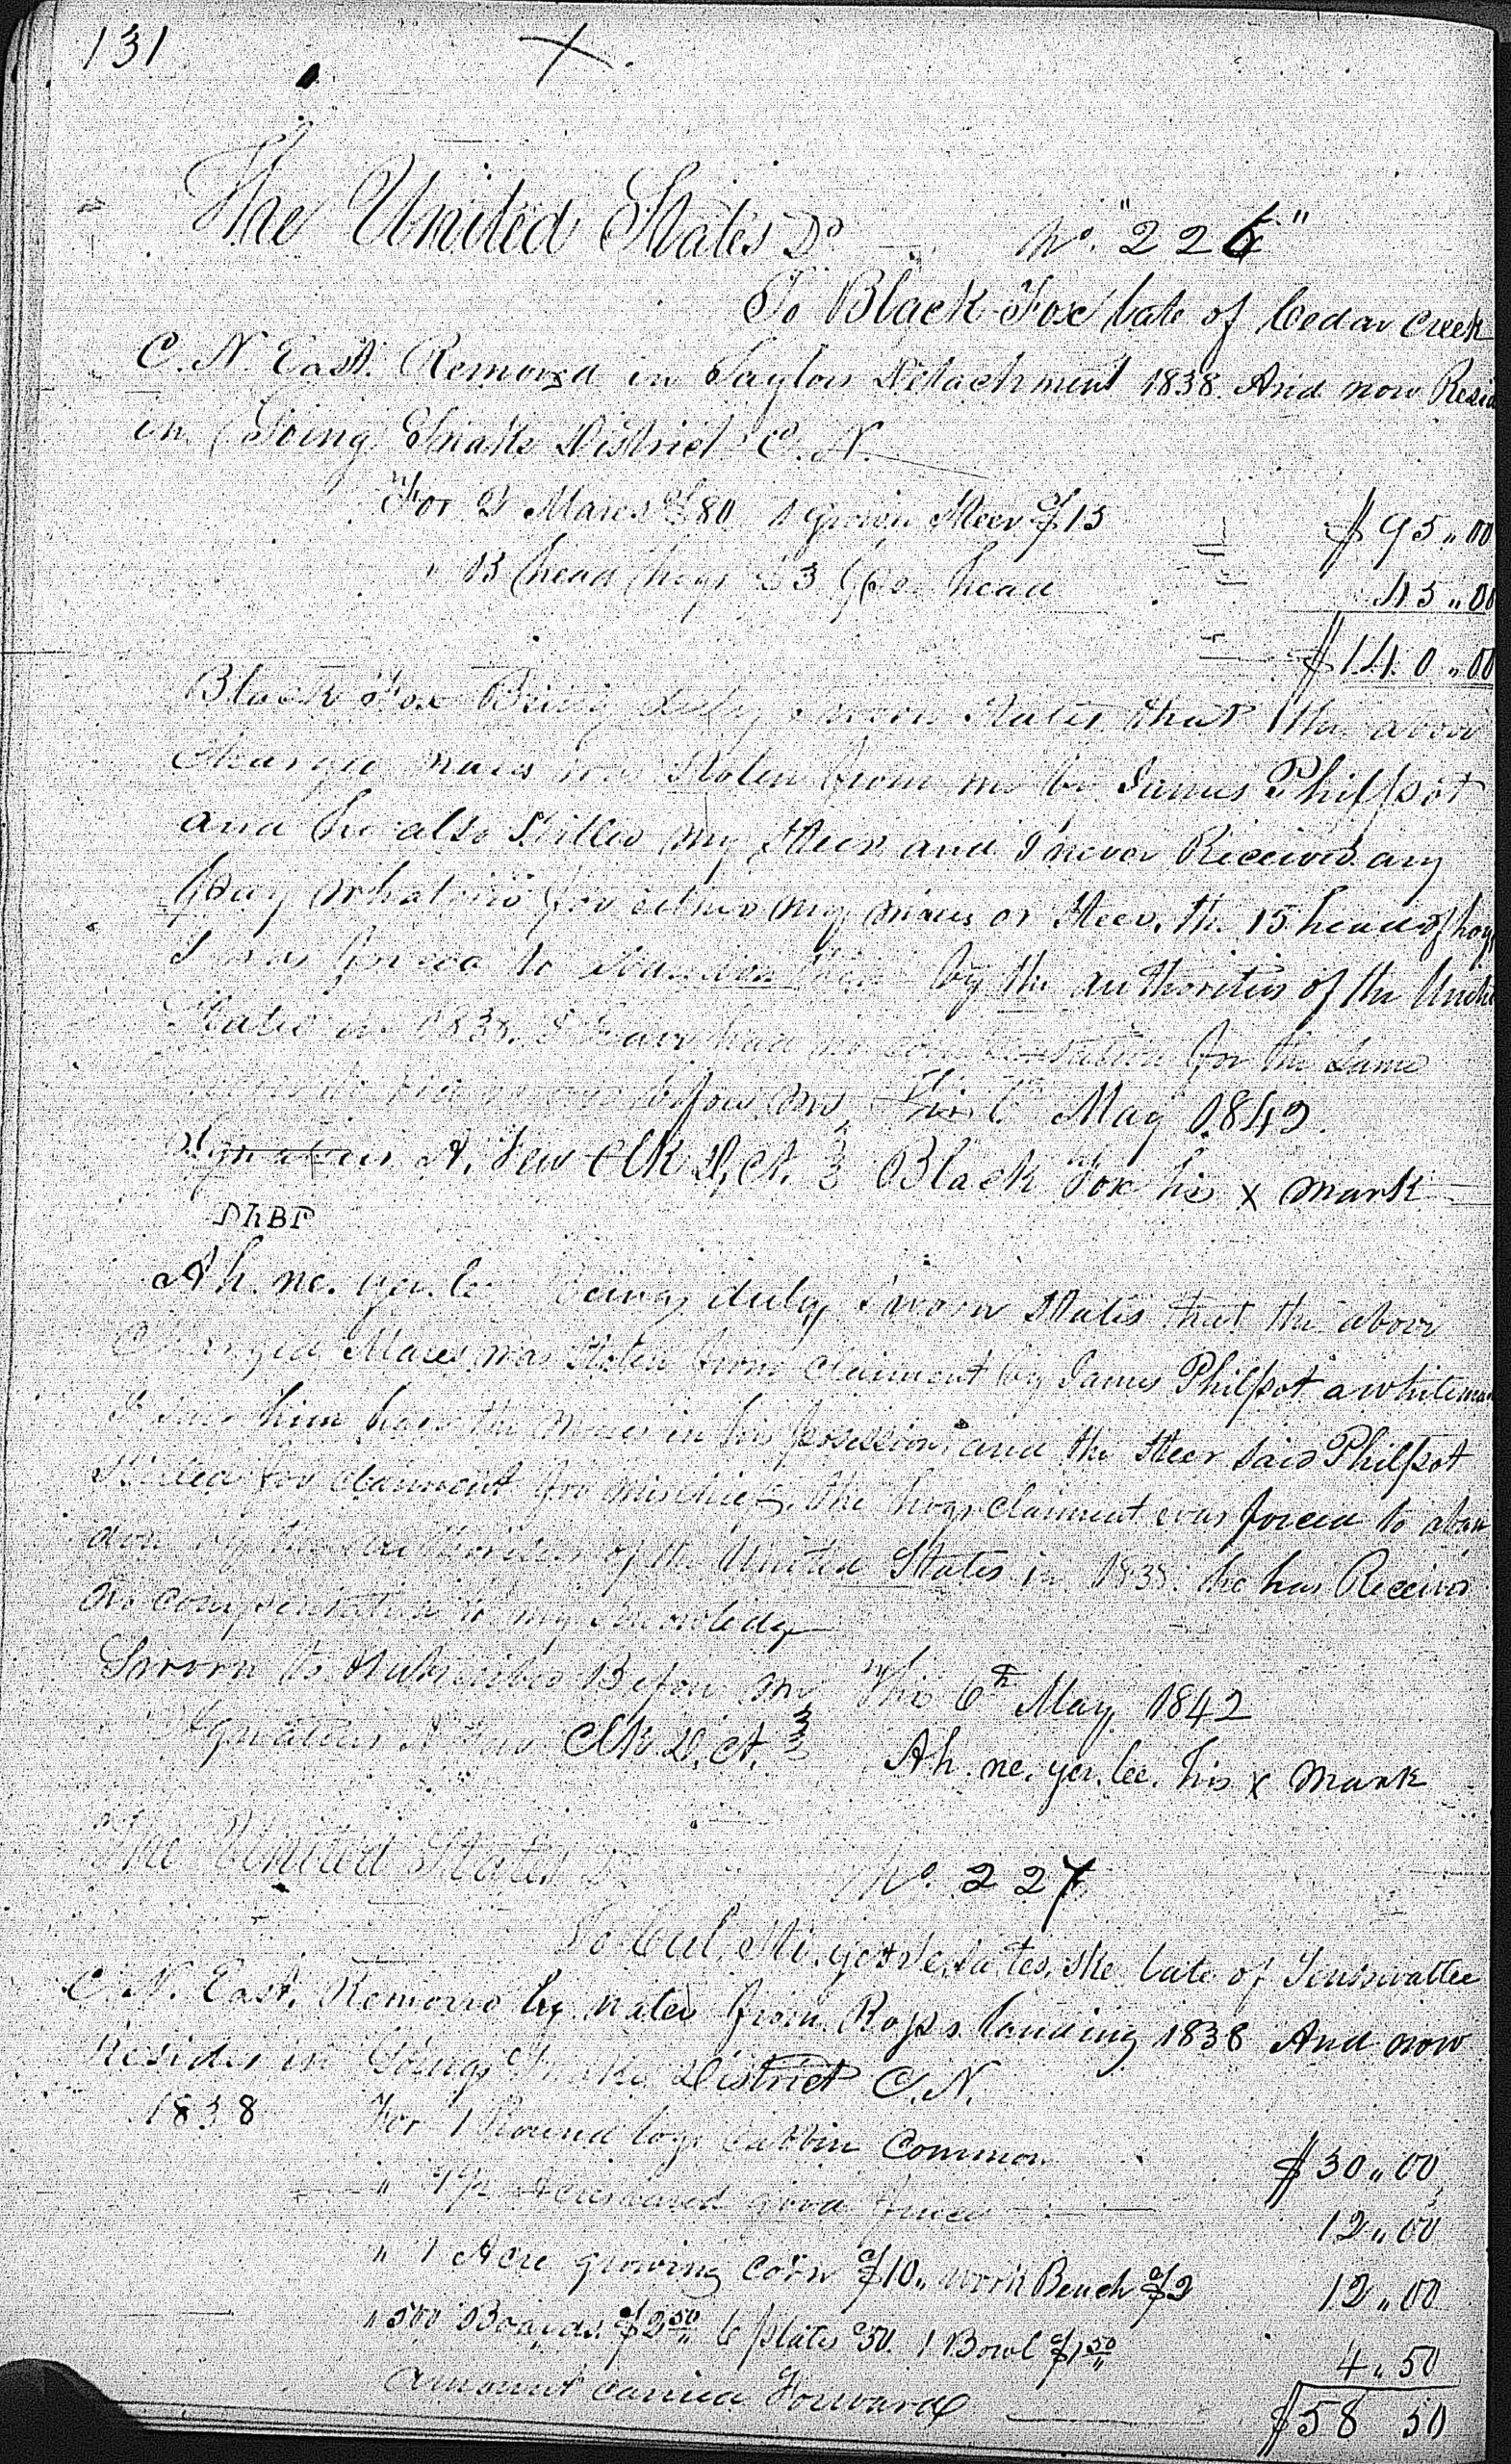 131
The United States Do No. "226"
To Black Fox late of Cedar Creek
C. N. East. Removed in Taylors Detachment 1838. And now Resid
in Going Snake District C. N.
For 2 Mares $80 1 grown Steer $15 $95.,00
" 15 head hogs $3 per head 45.,00
$140.,00
Black Fox Being duly sworn States that the above
charged mares was Stolen from me by James Philpot
and he also killed my Steer and I never Received any
pay whatever for either my mares or Steer. the 15 head of hogs
I was forced to abandon them by the authorities of the United
States in 1838. I have had no compensation for the same
before me This 6th May 1842.
Ignatius A. Few Clk D. Ct. Black Fox his x mark
DhBF
Ah. ne. yer. le being duly sworn States that the above
Charged Mares was Stolen from claiment by James Philpot a whiteman
I saw him have the mares in his possession and the Steer said Philpot
killed for claiment for mischief. The hogs claiment was forced to aban
don by the authorities of the United States in 1838. he has Received
no compensation to my knowledge
Sworn to & subscribed Before me This 6th May 1842
Ignatius A Few Clk D. Ct. Ah. ne. yer. lee. his x mark
The United States Dr No. 227
late of
C. N. East. Removed by water from Rosss landing 1838 And now
Resides in Going Snake District C. N.
1838 For 1 Round log cabbin common $30.,00
" good fence 12.,00
" 1 Acre growing corn $10., work Bench $2 12.,00
" 500 Boards $2.50 6 plates 50. 1 Bowl $1.50 4.,50
Amount carried Forward $58 50